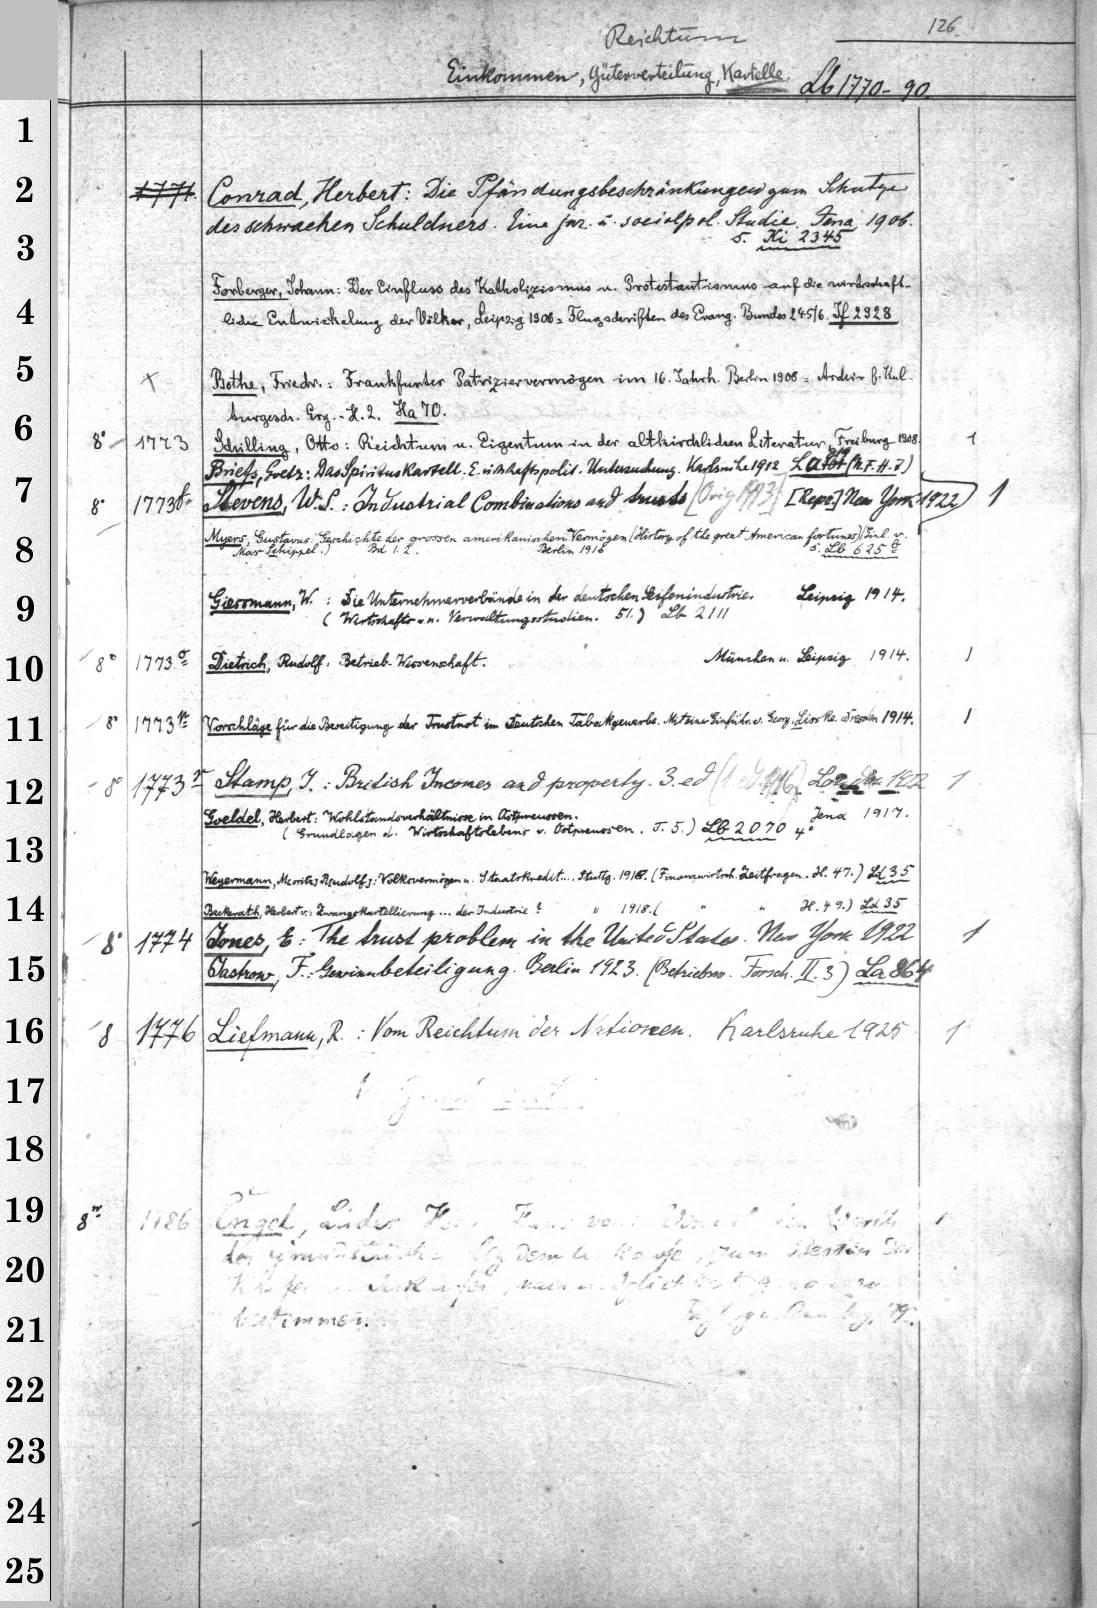 126
Reichtum
Einkommen, Güterverteilung, Kartelle. Lb 1770-90.
1
2 1771 Conrad, Herbert: Die Pfändungsbeschränkungen zum Schutze
des schwachen Schuldners. Eine jur. u. socialpol. Studie. Jena 1906.
3 s. Ki 2345
Forberger, Johann: Der Einfluss des Katholizismus u. Protestantismus auf die wirtschaft-
4 liche Entwickelung der Völker, Leipzig 1906 = Flugschriften des Evang. Bundes 245/6. If 2328
5 x Bothe, Friedr.: Frankfurter Patriziervermögen im 16. Jahrh. Berlin 1908 = Archiv f. Kul-
turgesch. Erg.-H. 2. Ha 70.
6 8° 1773 Schilling, Otto: Reichtum u. Eigentum in der altkirchlichen Literatur, Freiburg 1908. 1
Briefs, Goetz: Das Spirituskartell. E. wirtschaftspolit. Untersuchung. Karlsruhe 1912 La (N.F.H.7)
7 8° 1773 Stevens, W. S.: Industrial Combinations and trusts [Orig 1913] [Repr.] New York 1922 1
8 Myers, Gustavus: Geschichte der grossen amerikanischen Vermögen (History of the great American fortunes) (Einl. v.
Max Schippel.) Bd 1. 2. Berlin 1916 s. Lb 625
9 Giessmann, W.: Die Unternehmerverbände in der deutschen Seifenindustrie. Leipzig 1914.
(Wirtschafts- u. Verwaltungsstudien. 51.) Lb 2111
10 8° 1773 Dietrich, Rudolf: Betrieb-Wissenschaft. München u. Leipzig 1914. 1
11 8° 1773 Vorschläge für die Beseitigung der Trustnot im Deutschen Tabakgewerbe. Mit einer Einführ. v. Georg Dresden 1914. 1
12 8° 1773 Stamp, J.: British Incomes and property. 3. ed London 1922 1
Goeldel, Herbert: Wohlstandsverhältnisse in Ostpreussen. Jena 1917.
13 (Grundlagen d. Wirtschaftslebens v. Ostpreussen. T. 5.) Lb 2070 4°
Weyermann, M[oritz] R[udolf]: Volksvermögen u. Staatskredit... Stuttg. 1918. (Finanzwirtsch. Zeitfragen. H. 47.) Ld 35
14 Beckerath, Herbert v.: Zwangskartellierung ... der Industrie? " 1918. ( " " H. 49.) Ld 35
8° 1774 Jones, E: The trust problem in the United States. New York 1922 1
15 Jastrow, F.: Gewinnbeteiligung. Berlin 1923. (Betriebsw. Forsch. II. 3) La 864
16 8 1776 Liefmann, R.: Vom Reichtum der Nationen. Karlsruhe 1925 1
17
18
19 8° 1786 Engel, Lüder
20
21 bestimmen.
22
23
24
25